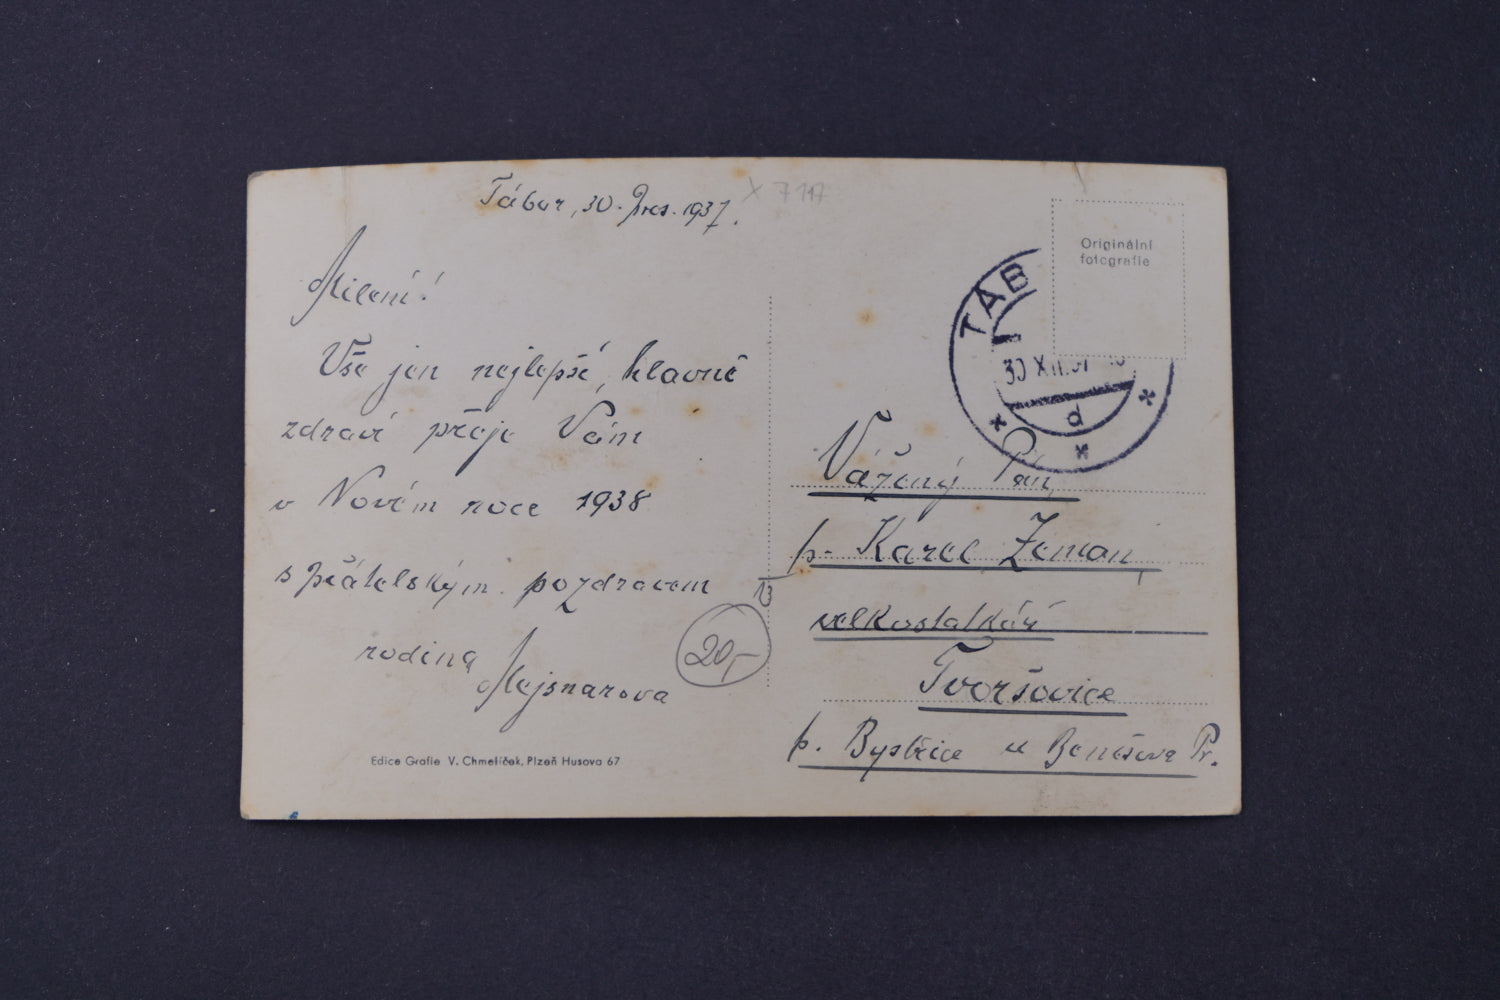 Tábor, 30. Pros. 1937.
X 7117
Milení!
Vše jen nejlepší, hlavně
zdraví přeje Vám
v Novém roce 1938
s přátelským pozdravem
rodina Mejsnarova
20,-
Edice Grafie V. Chmelíček, Plzeň Husova 67
Originální
fotografie
TÁB
30 XII.37
d
Vážený Pán
p. Karel Zeman,
velkostatkář
Tvoršovice
p. Bystřice u Benešova Pr.